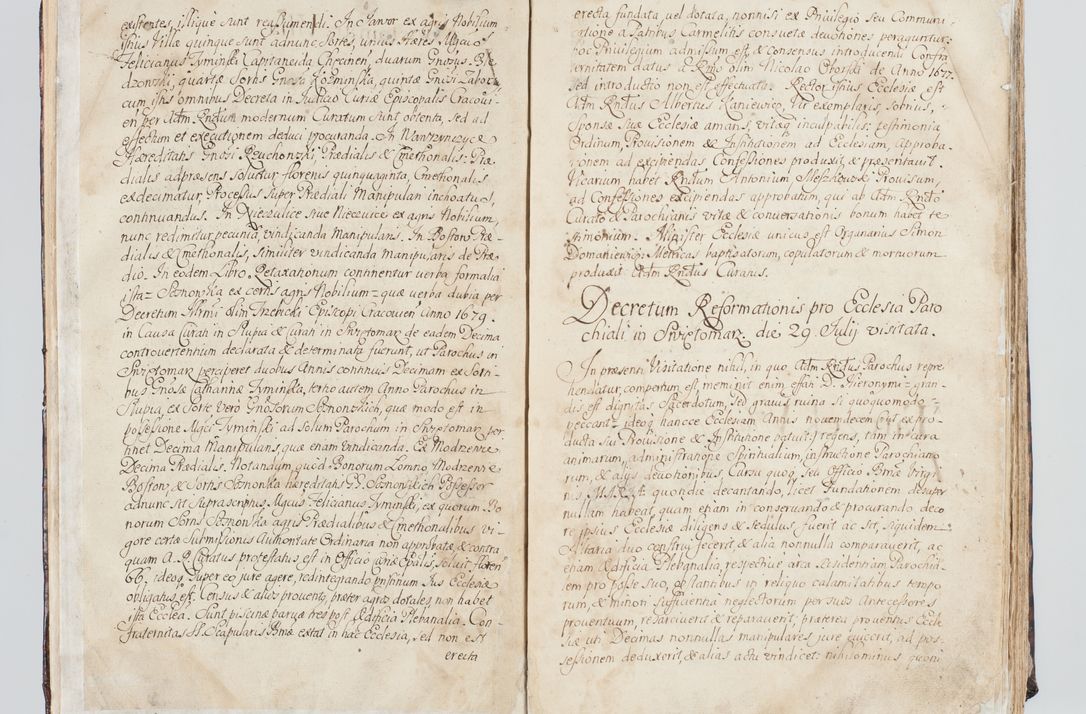 existentes, illique sunt reassumendi. In Janow ex agris Nobilium
istius Villæ quinque sunt adnunc Sortes, unius Hæres Mgcus
Felicianus Tyminski Capitaneida Chęcinen, duarum Gnosus
dzonski, quartæ Sortis Gnosi Kosminski, quintæ Gnosi
cum istis omnibus Decreta in Judicio Curiæ Episcopalis Cracovi-
en per Adm. Rndum modernum Curatum sunt obtenta, sed ad
effectum et executionem deduci procuranda. In
Hæreditatis Gnosi Prædialis & Cmethonalis: Præ
dialis adpræsens solvitur florenis quinquaginta, Cmethonalis
exdecimatur, Processus super Prædiali Manipulari inchoatus,
continuandus. In sive ex agris Nobilium,
nunc redimitur pecunia, vindicanda Manipularis. In Præ-
dialis & Cmethonalis, similiter vindicanda manipularis de Præ
dio. In eodem Libro Retaxationum continentur verba formalia
ista = Słonowska ex certis agris Nobilium = quæ verba dubia per
Decretum Illmi olim Trzebicki Episcopi Cracovien Anno 1679.
in Causa Curati in Słupia & Curati in de eadem Decima
controvertentium declarata & determinata fuerunt, ut Parochus in
perciperet duobus Annis continuis Decimam ex Sorti-
bus Gnosæ Catharinæ Tyminska, tertio autem Anno Parochus in
Słupia, ex Sorte vero Gnosorum quæ modo est in
possessione Mgci Tyminski ad solum Parochum in per-
tinet Decima Manipularis, quæ etiam vindicanda. Ex
Decima Prædialis. Notandum, quod Bonorum Łomno,
& Sortis hæreditatis Possessor
adnunc sit suprascriptus Mgcus Felicianus Tyminski, ex quorum Bo
norum Sortis agris Prædialibus & Cmethonalibus vi-
gore certæ Submissionis Authoritate Ordinaria non approbatæ, & contra
quam A. R. Curatus protestatus est in Officio Curiæ Epalis, solvit floren
66, ideoq super eo jure agere, redintegrando pristinum Jus Ecclesiæ
obligatus est. Census & alios proventus, præter agros dotales, non habet
ista Ecclea. Sunt piscinæ parvæ tres post Ædificia Plebanalia. Con
fraternitas SS. Scapularis Bmæ extat in hac Ecclesia, sed non est
erecta
erecta fundata, vel dotata, nonnisi ex Privilegio seu Communi-
catione a Patribus Carmelitis consuetæ devotiones peraguntur:
hoc Privilegium admissum est, & Consensus introducendi Confra
ternitatem datus a Rmo olim Nicolao Oborski de Anno 1677.
sed introductio non est effectuata. Rector istius Ecclesiæ est
Adm Rndus Albertus Kaniewicz, Vir exemplaris, sobrius,
Sponsæ suæ Ecclesiæ amans, vitæq inculpabilis: testimonia
Ordinum, Provisionem & Institutionem ad Ecclesiam, approba-
tionem ad excipiendas Confessiones produxit & præsentavit.
Vicarium habet Rndum Antonium Provisum,
ad Confessiones excipiendas approbatum, qui ab Adm. Rndo
Curato & Parochianis vitæ & conversationis bonum habet te
stimonium. Minister Ecclesiæ unicus est Organarius Simon
Metricas baptisatorum, copulatorum & mortuorum
produxit Adm Rndus Curatus.
Decretum Reformationis pro Ecclesia Paro
chiali in die 29 Julij visitata.
In præsenti Visitatione nihil, in quo Adm Rndus Parochus repre-
hendatur compertum est, meminit enim effati D. Hieronymi = gran-
dis est dignitas Sacerdotum, sed gravis ruina si quoquomodo =
peccant = ideoq hancce Ecclesiam Annis novemdecem (ut ex pro-
ducta sui Provisione & Institutione patuit) regens, tam in cura
animarum, administratione Spiritualium, instructione Parochiano
rum, & alijs devotionibus, Cursu quoq seu Officio Bmæ Virgi-
nis M. quotidie decantando, licet Fundationem desuper
nullam habeat, quam etiam in conservando & procurando deco
re ipsius Ecclesiæ diligens & sedulus fuerit ac sit, siquidem
Altaria duo construi fecerit, & alia nonnulla comparaverit, ac
etiam Ædificia Plebanalia, respectivæ area Residentiam Parochia-
lem pro posse suo, obstantibus in reliquo calamitatibus tempo
rum, & minori sufficientia neglectorum per suos Antecessores
proventuum, resarciverit & reparaverit, præterea proventus Eccle
siæ uti Decimas nonnullas manipulares jure evicerit, ad pos-
sessionem deduxerit, & alias actu vindicet: nihilominus quoni